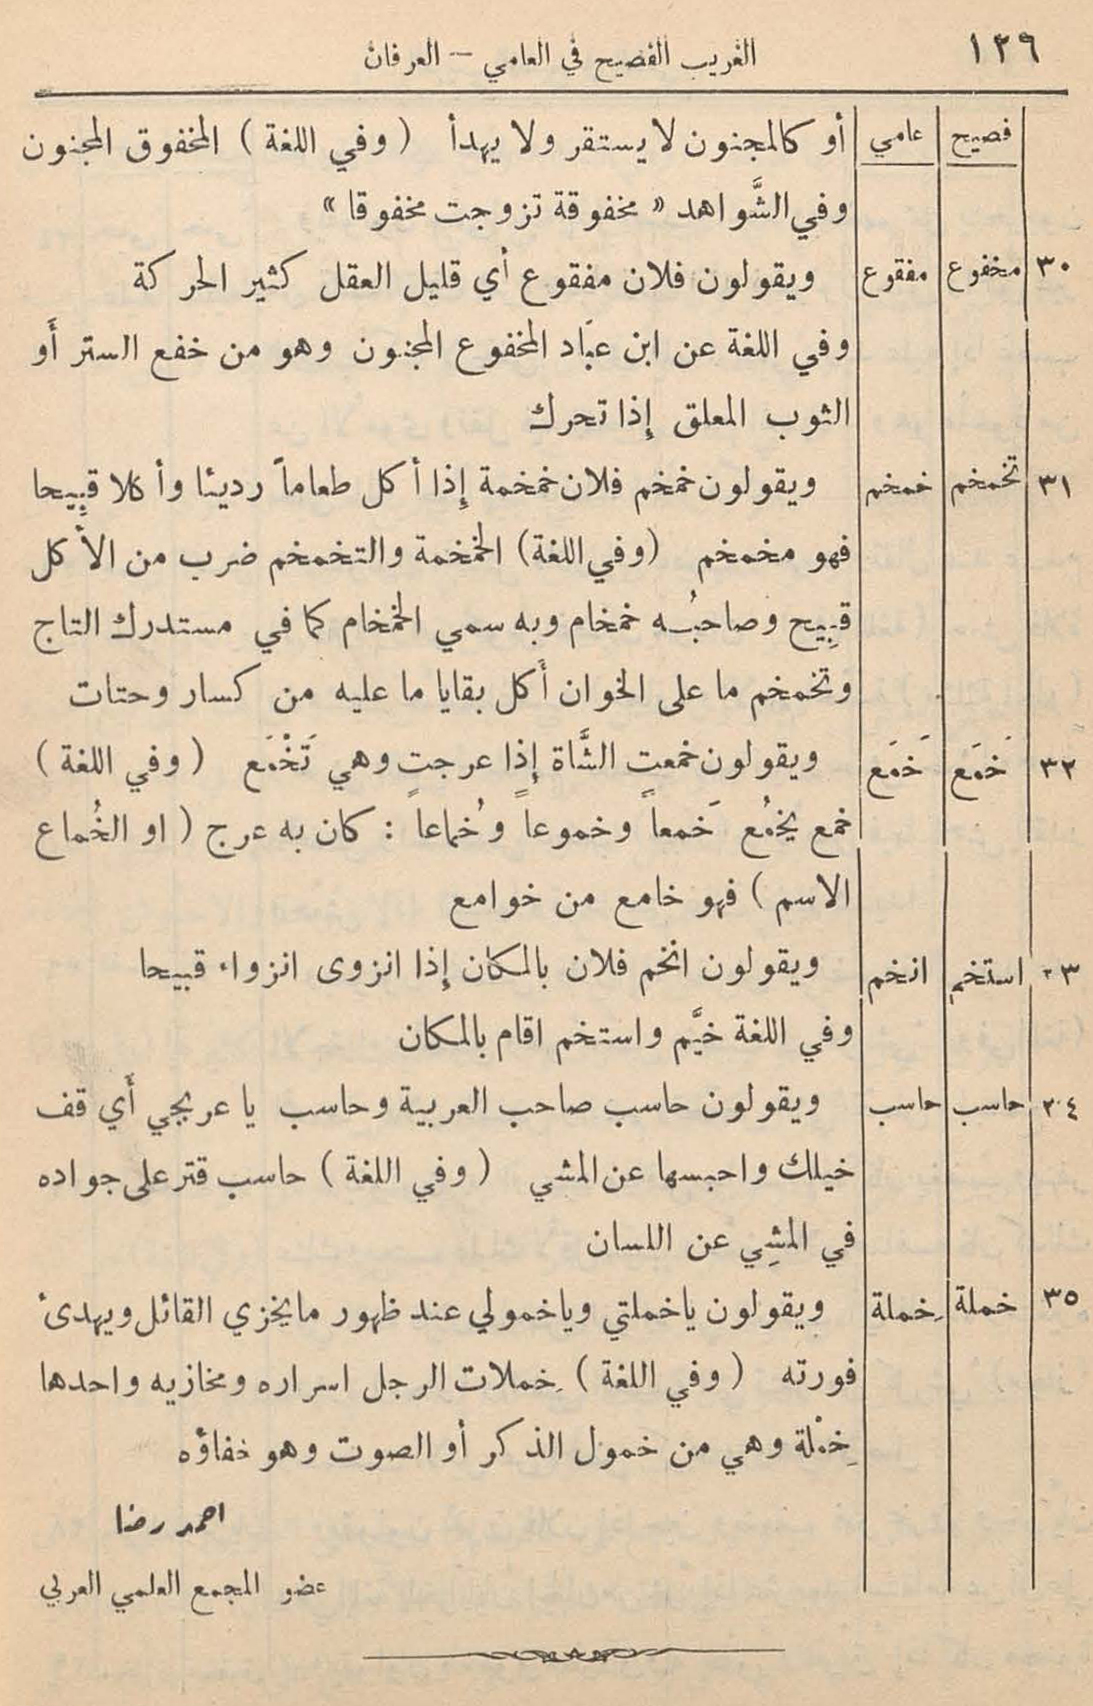 ١٣٩ الغريب الفصيح في العامي — العرفان
فصيح عامي أو كالمجنون لا يستقر ولا يهدأ ( وفي اللغة ) المخفوق المجنون
وفي الشَّواهد « مخفوقة تزوجت مخفوقا »
٣٠ مخفوع مفقوع ويقولون فلان مفقوع أي قليل العقل كثير الحركة
وفي اللغة عن ابن عبَاد المخفوع المجنون وهو من خفع الستر أَو
الثوب المعلق إِذا تحرك
٣١ تخمخم خمخم ويقولون خمخم فلان خمخمة إِذا أكل طعاماً رديئا وأكلا قبِيحا
فهو مخمخم (وفي اللغة) الخمخمة والتخمخم ضرب من الأكل
قبِيح وصاحبُه خمخام وبه سمي الخمخام كما في مستدرك التاج
وتخمخم ما على الخوان أَكل بقايا ما عليه من كسار وحتات
٣٢ خَمَع خَمَع ويقولون خمعتِ الشَّاة إِذا عرجت وهي تَخْمَع ( وفي اللغة )
خمع يخمُع خَمعاً وخموعاً وخُماعاً : كان به عرج ( او الخُماع
الاسم ) فهو خامع من خوامع
٣٣ استخم انخم ويقولون انخم فلان بالمكان إِذا انزوى انزواء قبيحا
وفي اللغة خيَّم واستخم اقام بالمكان
٣٤ حاسب حاسب ويقولون حاسب صاحب العربية وحاسب يا عربجي أَي قف
خيلك واحبسها عن المشي ( وفي اللغة ) حاسب قتر على جواده
في المشِي عن اللسان
٣٥ خملة خِملة ويقولون ياخملتي وياخمولي عند ظهور مايخزي القائل ويهدئ
فورته ( وفي اللغة ) خِملات الرجل اسراره ومخازيه واحدها
خِمْلة وهي من خمول الذكر أو الصوت وهو خفاؤه
احمد رضا
عضو المجمع العلمي العربي